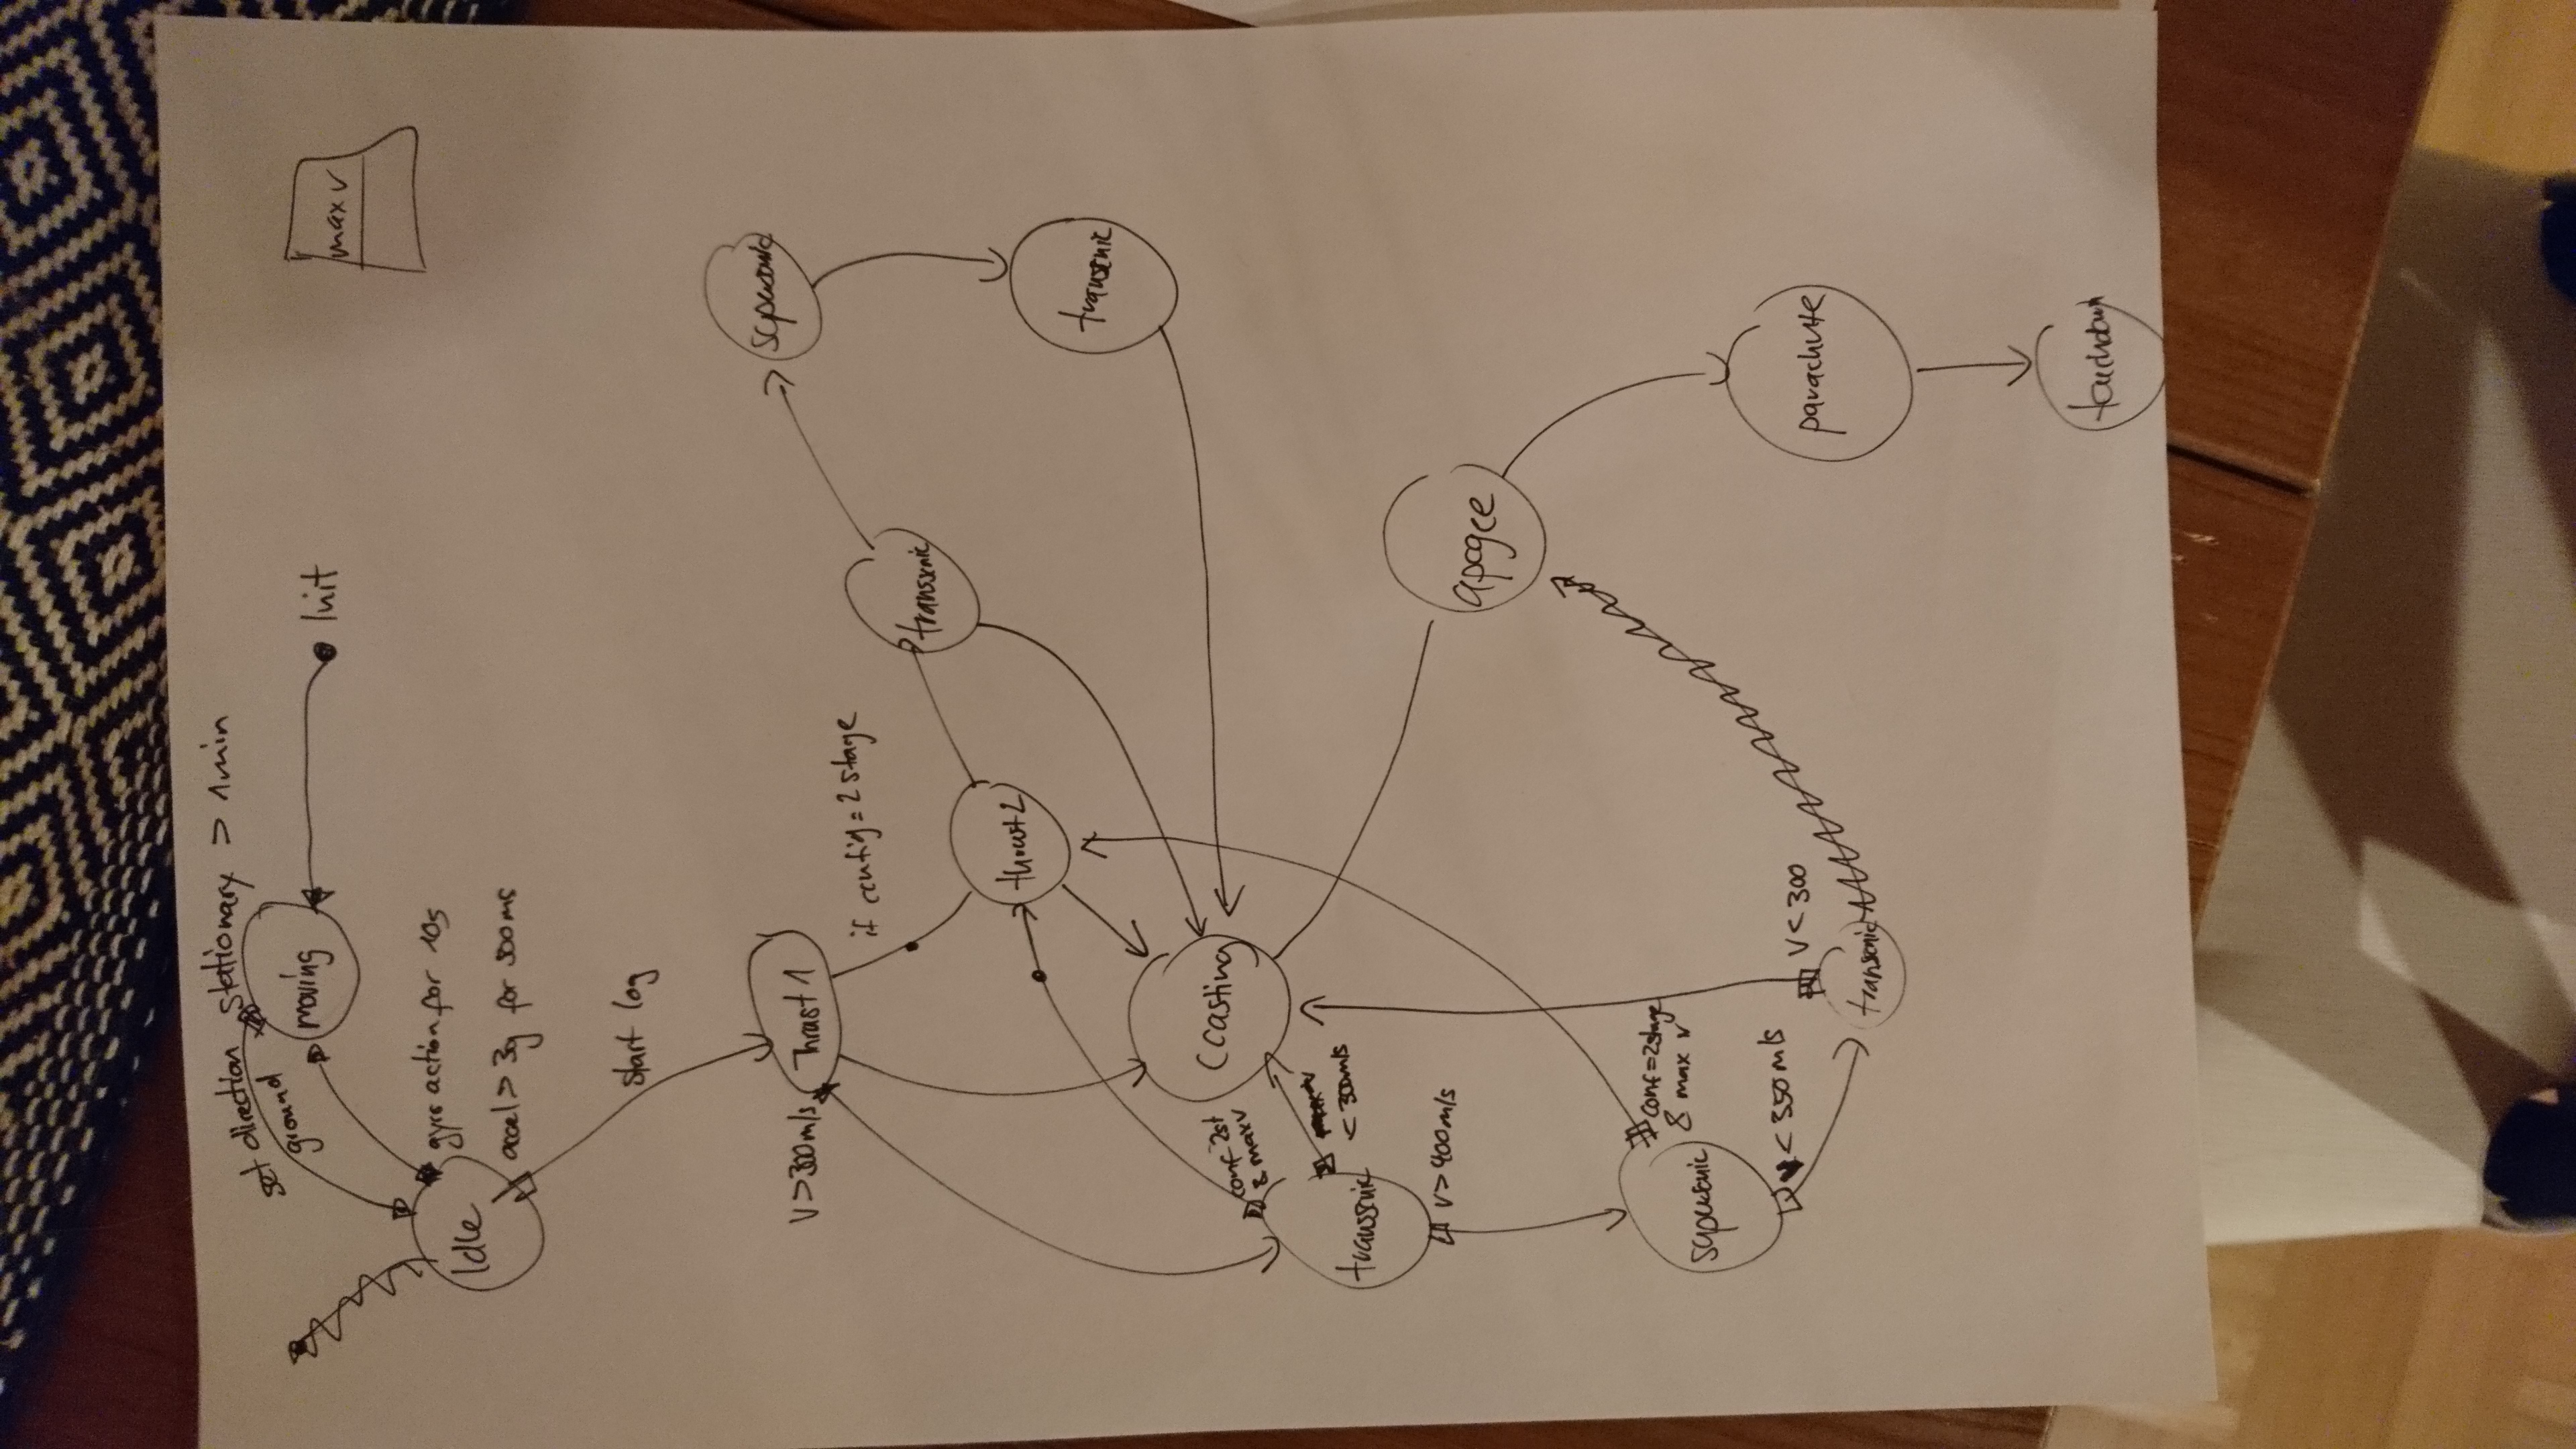 set direction
stationary > 1min
ground
moving
Init
max v
Idle
gyro action for 10s
accel > 3g for 500ms
start log
V > 300m/s
Thrust 1
if config = 2 stage
supersonic
transsonic
thrust 2
transsonic
Coasting
conf 2st
& max v
< 300m/s
transsonic
V > 400m/s
apogee
conf = 2stage
& max v
supersonic
v < 350m/s
V < 300
transsonic
parachute
touchdown